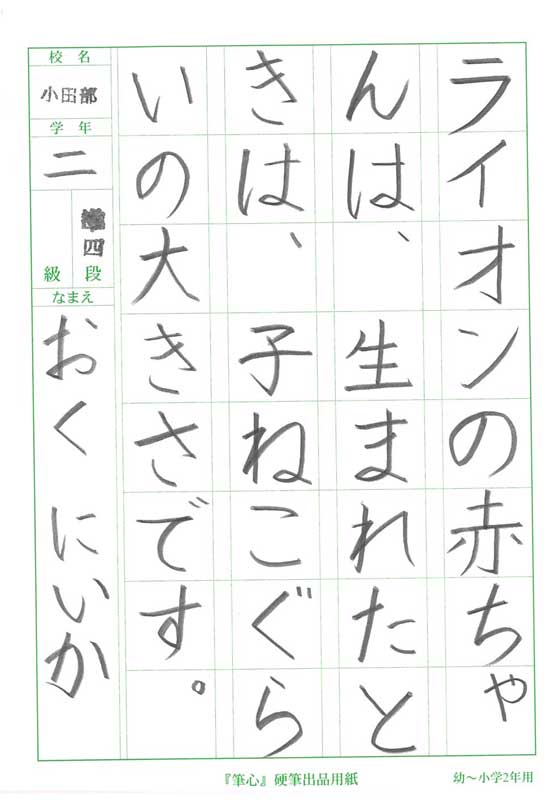 ライオンの赤ちゃ
んは、生まれたと
きは、子ねこぐら
いの大きさです。
校名
小田部
学年
二
四
級段
なまえ
おくにいか
『筆心』硬筆出品用紙
幼〜小学2年用